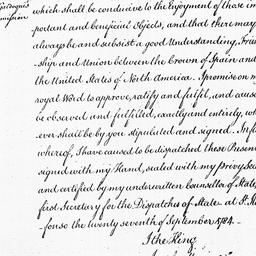 which shall be conducive to the Enjoyment of those im
portant and beneficial Objects, and that there may
always be and subsist a good Understanding, Frien
ship and Union between the Crown of Spain and
the United States of North America. I promise on m
royal Word to approve, ratify and fulfil, and cause
be observed and fulfilled, exactly and entirely, wh
ever shall be by you stipulated and signed. In fa
whereof, I have caused to be dispatched these Presen
signed with my Hand, sealed with my Privy Sea
and certified by my underwritten Counsellor of State,
first Secretary for the Dispatches of State at St. Il
fonso the twenty seventh of September 1784.
I the King